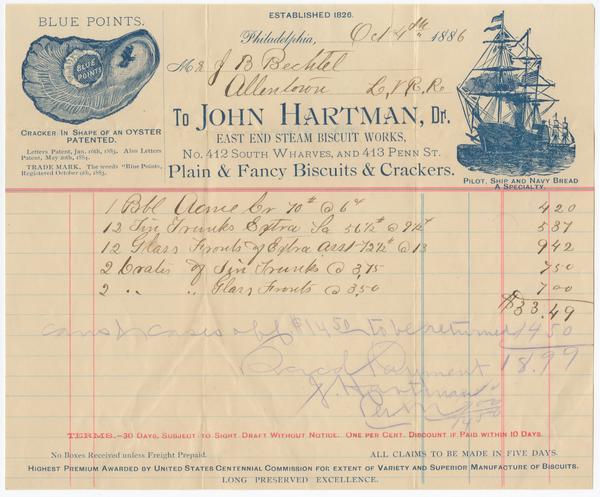 ESTABLISHED 1826.
BLUE POINTS.
BLUE POINTS
CRACKER IN SHAPE OF AN OYSTER
PATENTED.
Letters Patent, Jan. 16th, 1883. Also Letters
Patent, May 20th, 1884.
TRADE MARK. The words "Blue Points,
Registered October 9th, 1883.
Philadelphia, Oct 4th 1886
M J B Bechtel
Allentown L.V.R.R.
To JOHN HARTMAN, Dr.
EAST END STEAM BISCUIT WORKS,
No. 412 SOUTH WHARVES, AND 413 PENN ST.
Plain & Fancy Biscuits & Crackers.
PILOT, SHIP AND NAVY BREAD
A SPECIALTY.
1 Bbl Acme Cr 70# @ 6 4 20
12 Tin Trunks Extra 56½# @ 9½ 5 37
12 Glass Fronts of Extra Asst 72½# @ 13 9 42
2 Crates of Tin Trunks @ 3.75 7 50
2 " " Glass Fronts @ 3.50 7 00
$33.49
cans & cases off $14.50 to be returned 14 50
18.99
Recd Payment
J. Hartman
14.50
TERMS.—30 DAYS, SUBJECT TO SIGHT DRAFT WITHOUT NOTICE. ONE PER CENT. DISCOUNT IF PAID WITHIN 10 DAYS.
No Boxes Received unless Freight Prepaid.
ALL CLAIMS TO BE MADE IN FIVE DAYS.
HIGHEST PREMIUM AWARDED BY UNITED STATES CENTENNIAL COMMISSION FOR EXTENT OF VARIETY AND SUPERIOR MANUFACTURE OF BISCUITS.
LONG PRESERVED EXCELLENCE.